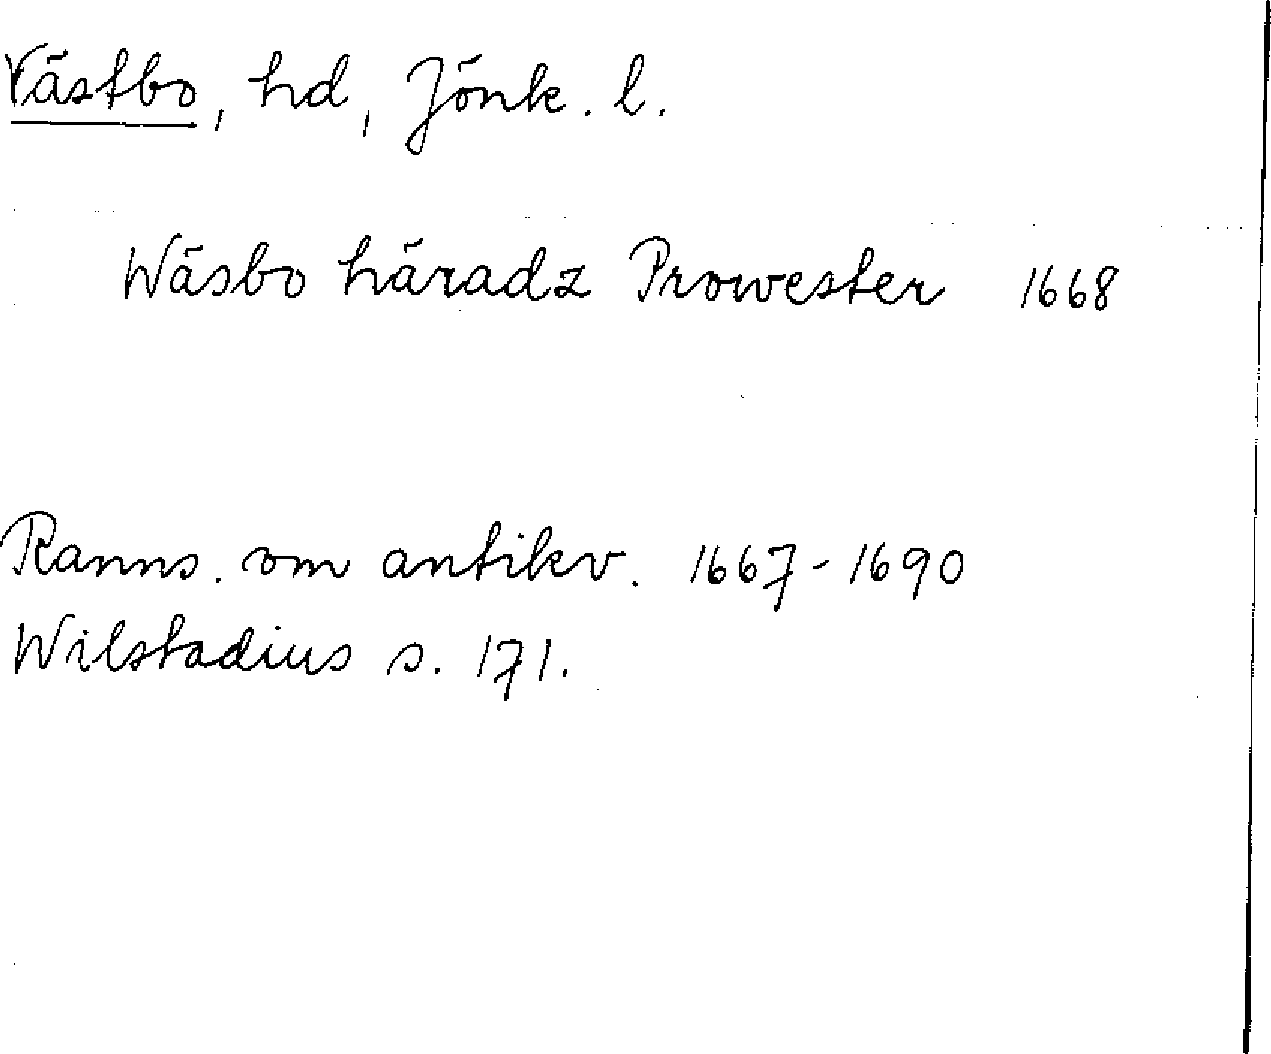 Västbo, hd, Jönk. l.
Wäsbo häradz Prowester 1668
Ranns. om antikv. 1667-1690
Wilstadius s. 171.